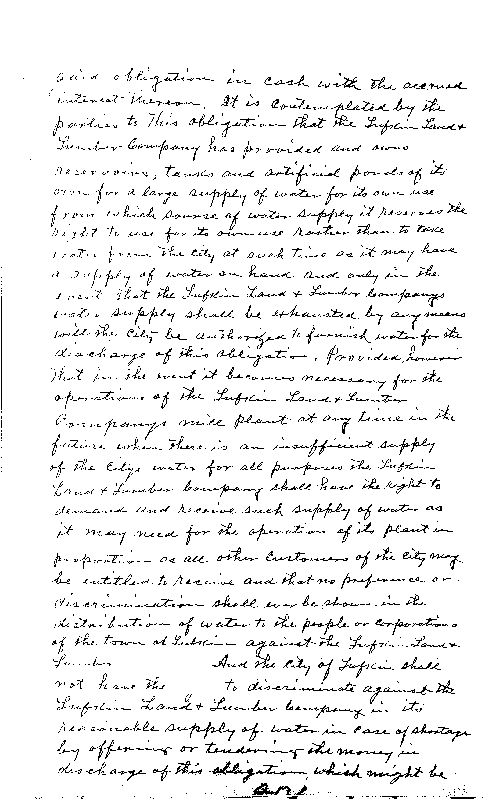 said obligation in cash with the accrued
interest thereon. It is contemplated by the
parties to this obligation that the Lufkin Land &
Lumber Company has provided and owns
reservoirs, tanks and artificial ponds of its
own for a large supply of water for its own use
from which source of water supply it reserves the
right to use for its own use rather than to take
water from the City at such time as it may have
a supply of water on hand and only in the
event that the Lufkin Land & Lumber Companys
water supply shall be exhausted by any means
will the City be authorized to furnish water for the
discharge of this obligation. Provided, however
that in the event it becomes necessary for the
operation of the Lufkin Land & Lumber
Companys mill plant at any time in the
future when there is an insufficient supply
of the Citys water for all purposes the Lufkin
Land & Lumber Company shall have the right to
demand and receive such supply of water as
it may need for the operation of its plant in
proportion as all other customers of the City may
be entitled to receive and that no preference or
discrimination shall ever be shown in the
distribution of water to the people or corporations
of the town of Lufkin against the Lufkin Land &
Lumber And the City of Lufkin shall
not have the to discriminate against the
Lufkin Land & Lumber Company in its
reasonable supply of water in case of shortage
by offering or tendering the money in
discharge of this obligation which might be